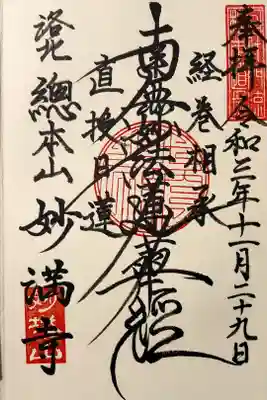 奉拝 令和三年十一月二十九日
経巻相承
南無妙法蓮華経
直授日蓮
洛北 總本山 妙満寺